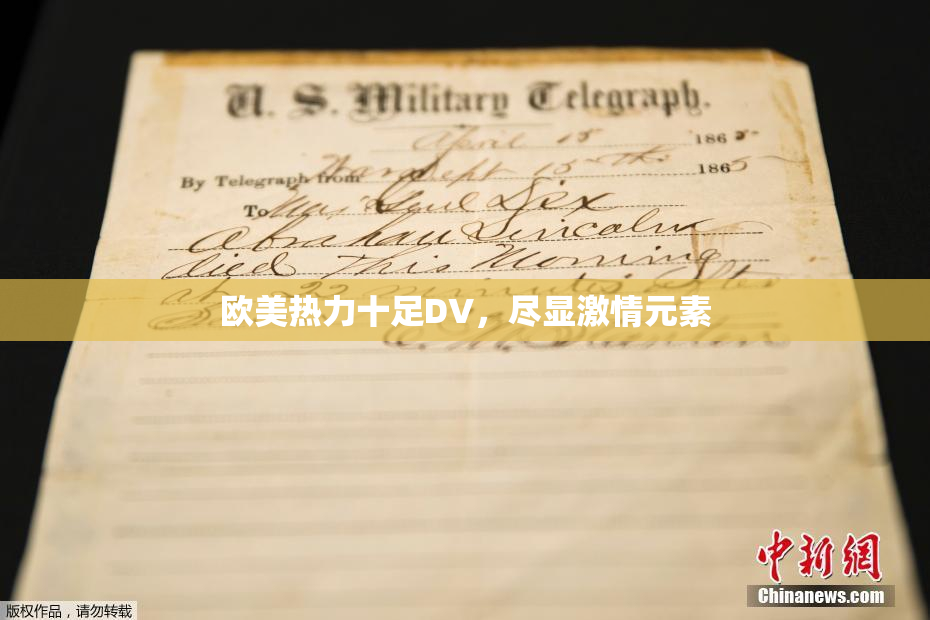 U. S. Military Telegraph.
April 15 1865
By Telegraph from War Dept 15th 1865
To Maj Genl Dix
Abraham Lincoln
died This Morning
at 22 minutes after
欧美热力十足DV，尽显激情元素
E. M. Stanton
中新网
Chinanews.com
版权作品，请勿转载